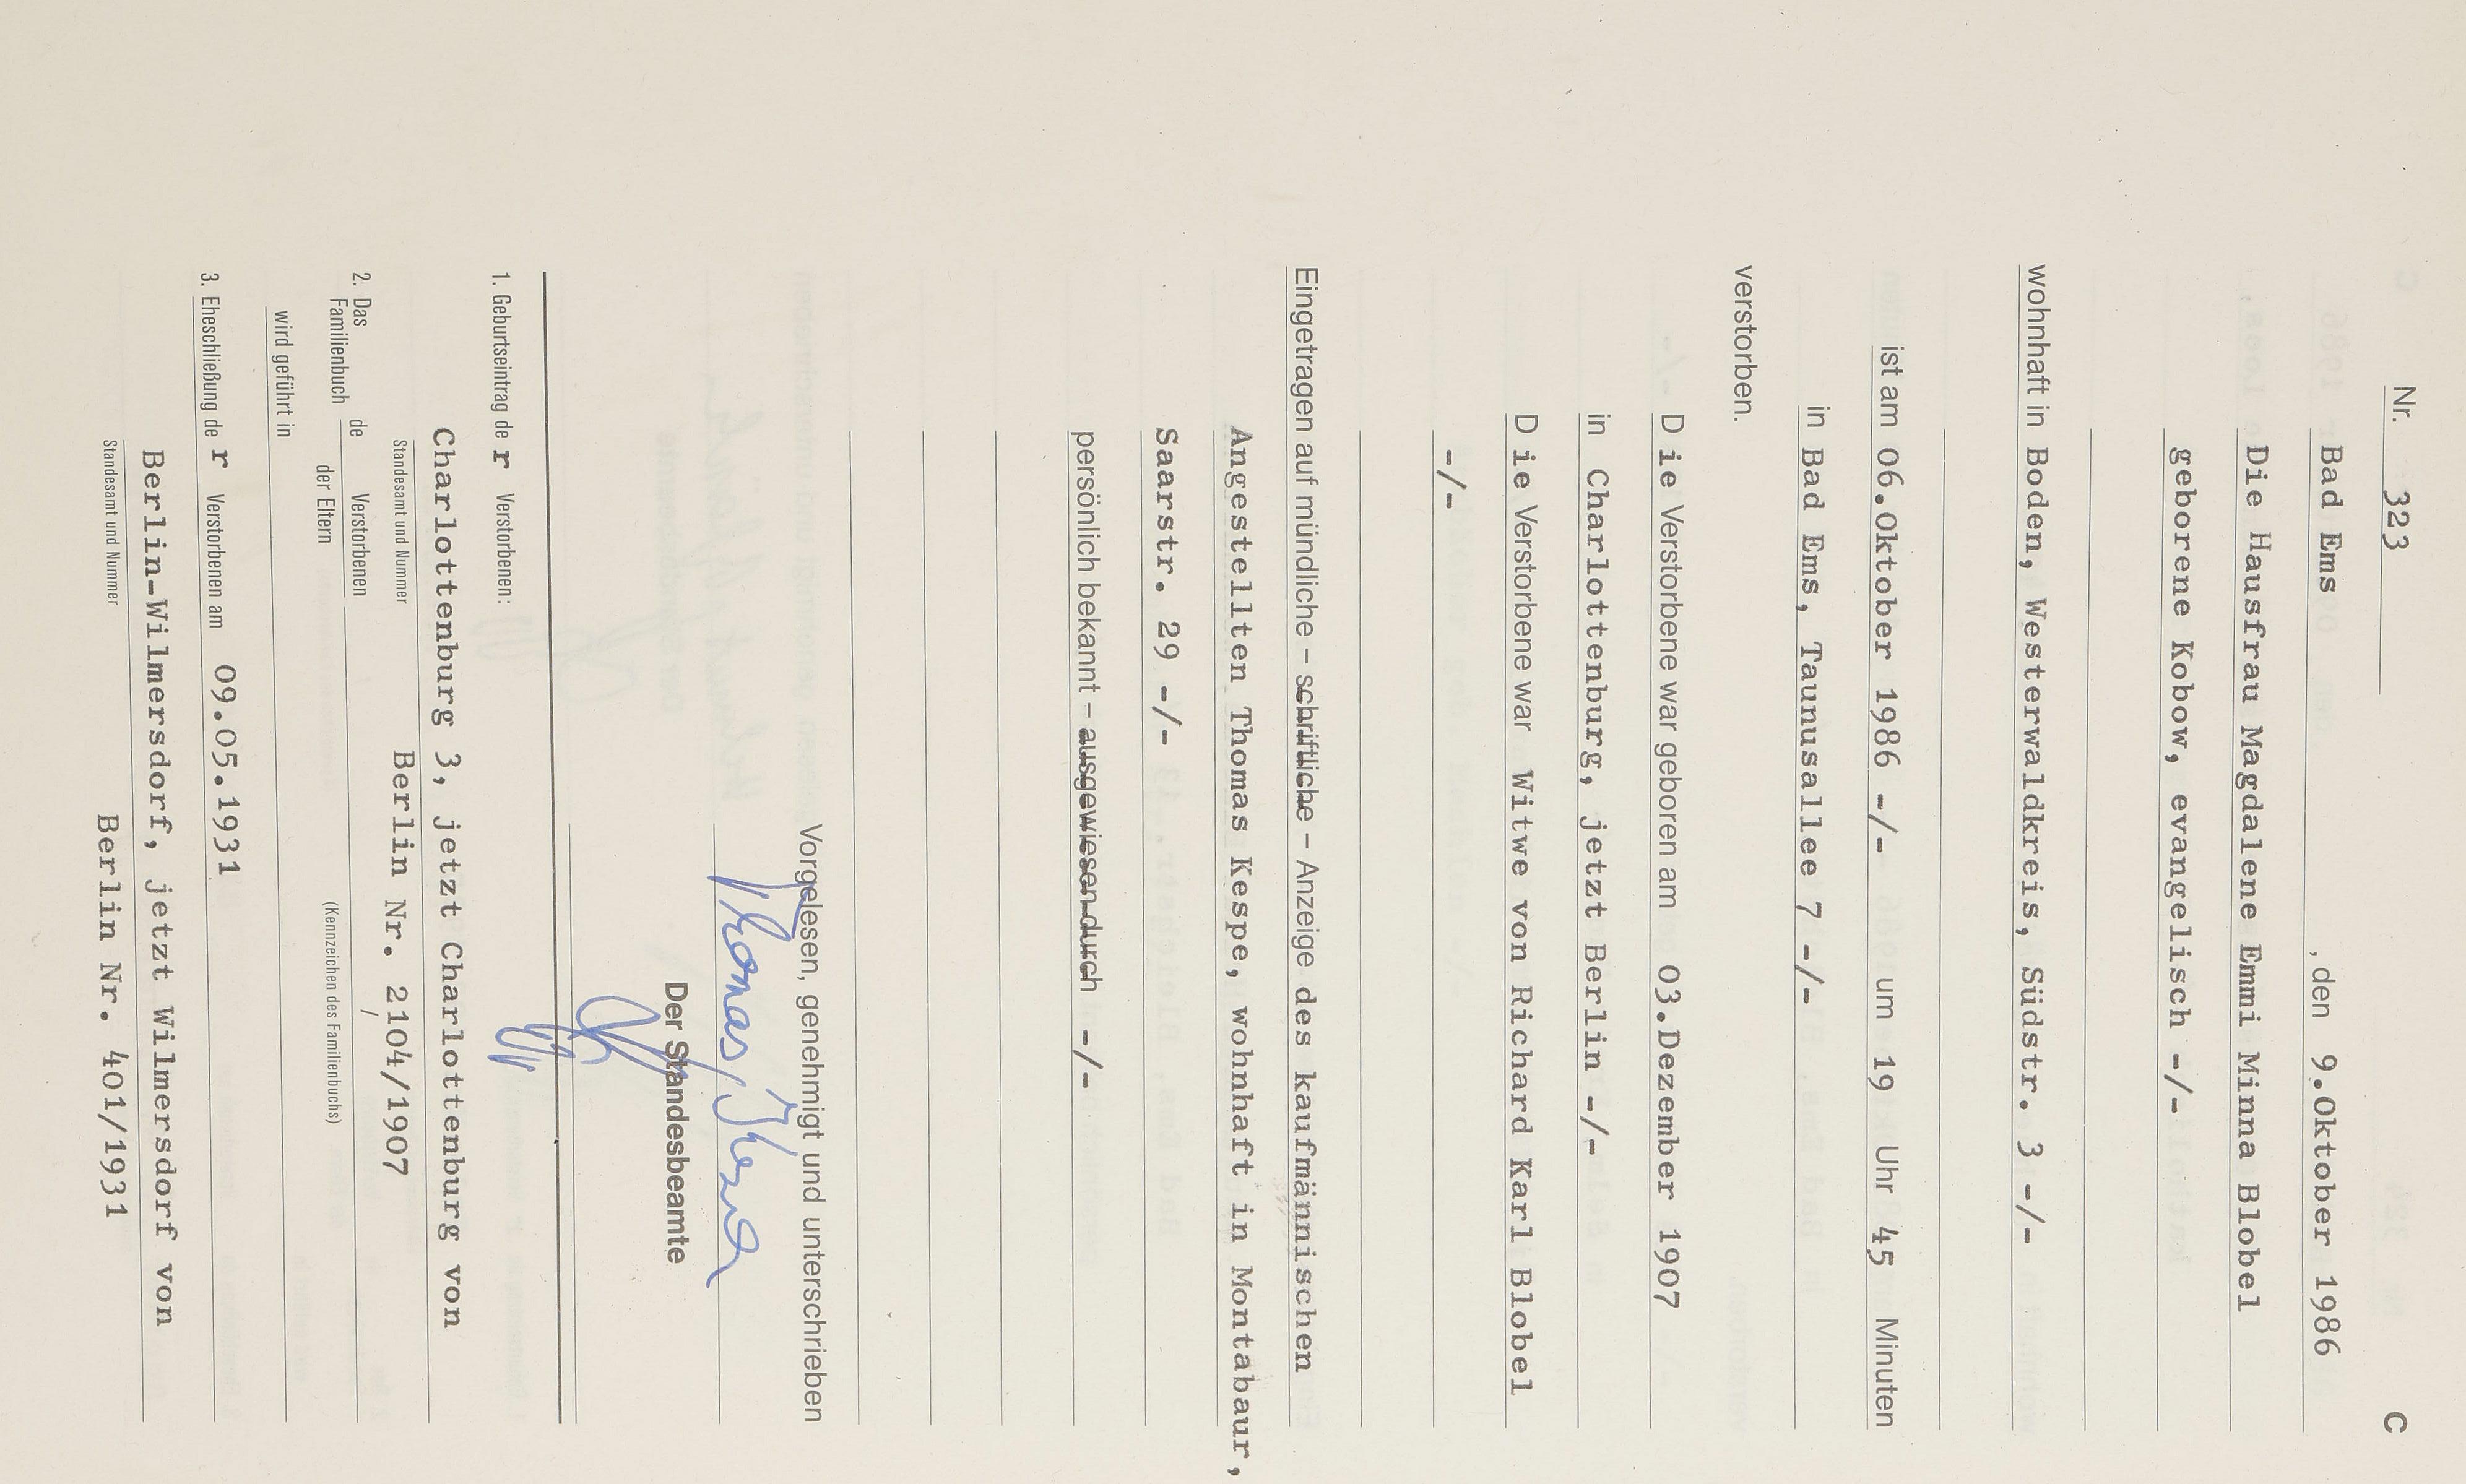 Nr. 323 C
Bad Ems , den 9.Oktober 1986
Die Hausfrau Magdalene Emmi Minna Blobel
geborene Kobow, evangelisch -/-
wohnhaft in Boden, Westerwaldkreis, Südstr. 3 -/-
ist am 06.Oktober 1986 -/- um 19 Uhr 45 Minuten
in Bad Ems, Taunusallee 7 -/-
verstorben.
D ie Verstorbene war geboren am 03.Dezember 1907
in Charlottenburg, jetzt Berlin -/-
D ie Verstorbene war Witwe von Richard Karl Blobel
-/-
Eingetragen auf mündliche – schriftliche – Anzeige des kaufmännischen
Angestellten Thomas Kespe, wohnhaft in Montabaur,
Saarstr. 29 -/-
persönlich bekannt – ausgewiesen durch -/-
Vorgelesen, genehmigt und unterschrieben
Thomas
Der Standesbeamte
1. Geburtseintrag de r Verstorbenen:
Charlottenburg 3, jetzt Charlottenburg von
Standesamt und Nummer Berlin Nr. 2104/1907
2. Das Familienbuch de Verstorbenen der Eltern
(Kennzeichen des Familienbuchs)
wird geführt in
3. Eheschließung de r Verstorbenen am 09.05.1931
Berlin-Wilmersdorf, jetzt Wilmersdorf von
Standesamt und Nummer Berlin Nr. 401/1931